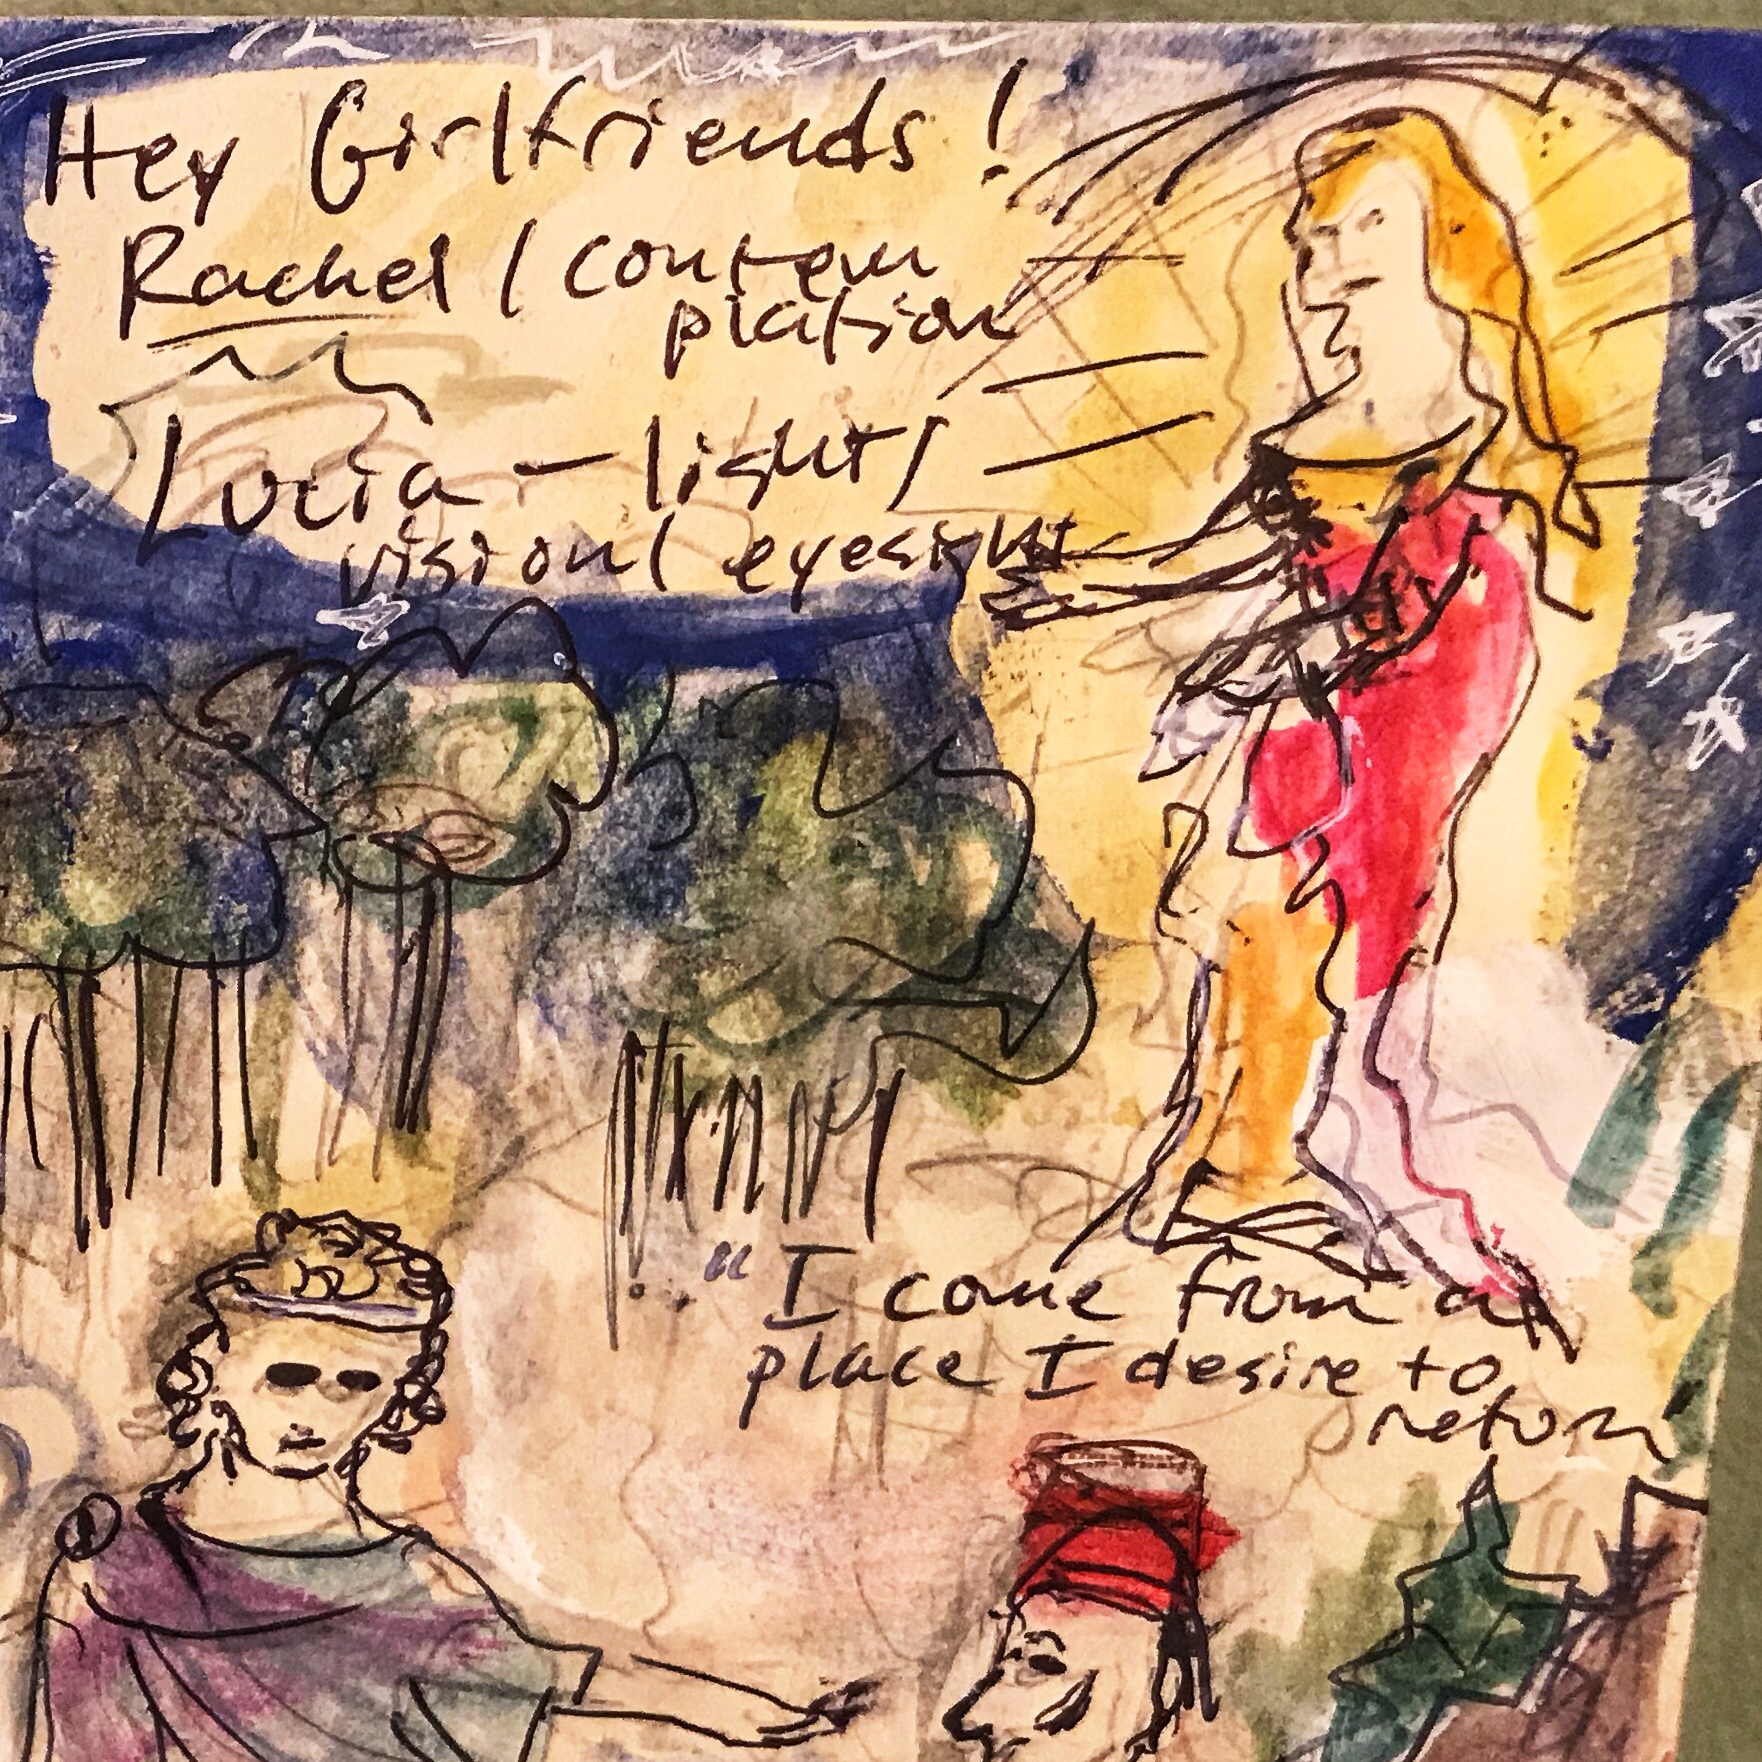 Hey Girlfriends!
Rachel / contem
plation
Lucia - light/
vision/ eyesight
"I come from a
place I desire to
return